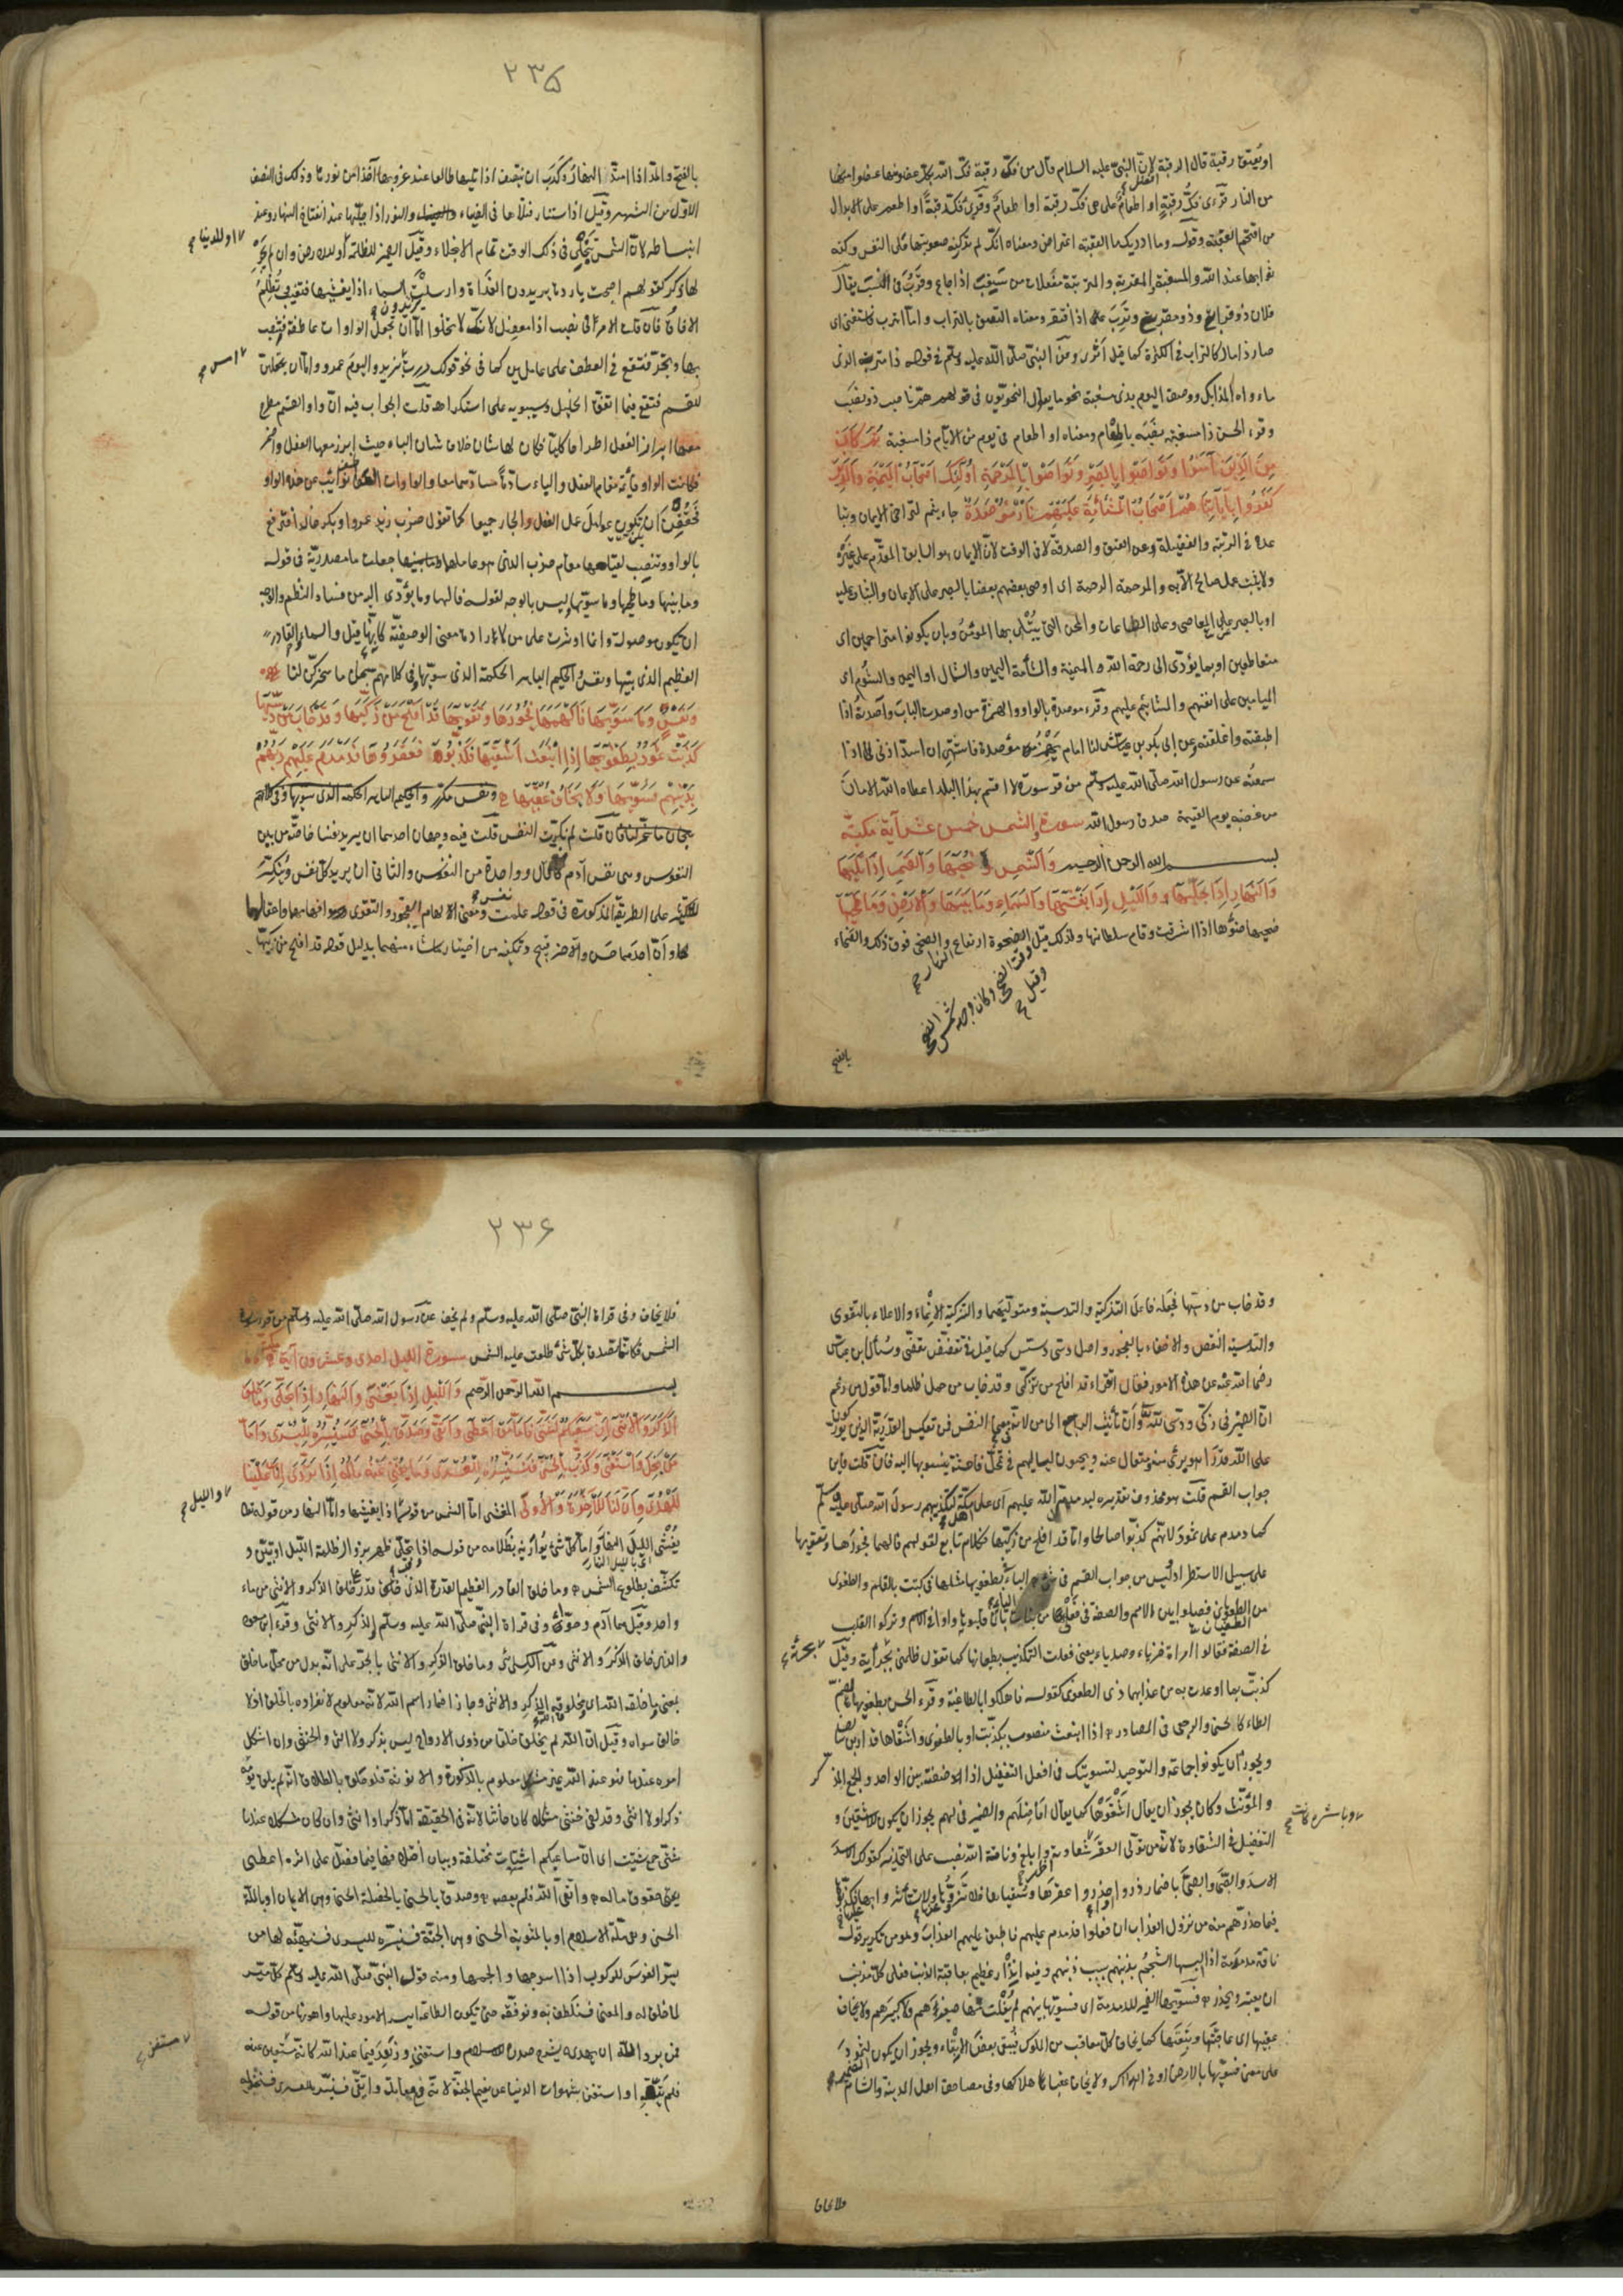 او يعتق رقبة قال الرقبة لان النبي عليه السلام قال من فك رقبة فك الله بكل عضو منها عضوا منها
من النار قرئ فك رقبة او اطعام على هي فك رقبة او اطعام وقرئ فك رقبة او اطعم على الابدال
من اقتحم العقبة وقوله وما ادريك ما العقبة اعتراض ومعناه انك لم تدر كنه صعوبتها على النفس وكنه
ثوابها عند الله والمسغبة والمقربة والمتربة مفعلات من سغب اذا جاع وقرب في النسب يقال
فلان ذو قرابتي وذو مقربتي وترب اذا افتقر ومعناه التصق بالتراب واما اترب فاستغنى اى
صار ذا مال كالتراب في الكثرة كما قيل اثرى وعن النبي صلى الله عليه وسلم في قوله ذا متربة الذى
ماواه المزابل ووصف اليوم بذى مسغبة نحو ما يقول النحويون في قولهم هم ناصب ذو نصب
وقرء الحسن ذا مسغبة نصبه باطعام ومعناه او اطعام في يوم من الايام ذا مسغبة ثم كان
من الذين آمنوا وتواصوا بالصبر وتواصوا بالمرحمة اولئك اصحاب الميمنة والذين
كفروا بآياتنا هم اصحاب المشئمة عليهم نار موصدة جاء بثم لتراخى الايمان وتبا
عده في الرتبة والفضيلة عن العتق والصدقة لا في الوقت لان الايمان هو السابق المقدم على غيره
ولا يثبت عمل صالح الا به والمرحمة الرحمة اى اوصى بعضهم بعضا بالصبر على الايمان والثبات عليه
او بالصبر على المعاصى وعلى الطاعات والمحن التى يبتلى بها المومن وبان يكونوا متراحمين اى
متعاطفين او بما يؤدى الى رحمة الله والميمنة والمشأمة اليمين والشمال او اليمن والشوم اى
الميامين على انفسهم والمشائيم عليهم وقرء موصدة بالواو والهمزة من اوصدت الباب وآصدته اذا
اطبقته واغلقته وعن ابى بكر بن عياش لنا امام يهمز مؤصدة فاشتهى ان اسد اذنى اذا
سمعته عن رسول الله صلى الله عليه وسلم من قرء سورة لا اقسم بهذا البلد اعطاه الله الامان
من غضبه يوم القيمة صدق رسول الله سورة والشمس خمس عشر آية مكية
بسم الله الرحمن الرحيم والشمس وضحيها والقمر اذا تليها
والنهار اذا جليها والليل اذا يغشيها والسماء وما بنيها والارض وما طحيها
ضحيها ضوؤها اذا اشرقت وقام سلطانها ولذلك قيل الضحوة ارتفاع والضحى فوق ذلك والضحاء
وقت الضحى وكان وجهه شمس الضحى
وقيل
النهار
بالفتح
٢٣٥
بالفتح والمد اذا امتد النهار وكرب ان ينتصف اذا تليها طالعا عند غروبها آخذا من نورها وذلك في النصف
الاول من الشهر وقيل اذا استدار فتلاها في الضياء والنور اذا جليها عند انتفاخ النهار وعند
انبساطه لان الشمس تنجلى في ذلك الوقت تمام الانجلاء وقيل الضمير للظلمة او للارض وان لم يجر
او للدنيا
لها ذكر كقولهم اصبحت باردة يريدون الغداة وارسلت يريدون السماء اذا يغشيها فتغيب وتظلم
الآفاق فان قلت الامر في نصب اذا معضل لانك لا تخلوا اما ان تجعل الواوات عاطفة فتنصب
بها وتجر فتقع في العطف على عاملين كما في نحو قولك مررت امس بزيد واليوم عمرو واما ان تجعلهن
للقسم فتقع فيما اتفق الخليل وسيبويه على استكراهه قلت الجواب فيه ان واو القسم مطرح
معها ابراز الفعل اطراحا كليا فكان لها شان خلاف شان الباء حيث ابرز معها الفعل واضمر
فكانت الواو قائمة مقام الفعل والباء سادة مسدهما معا والواوات العواطف نوائب عن هذه الواو
فحققن ان يكن عوامل عمل الفعل والجار جميعا كما تقول ضرب زيد عمروا وبكر خالدا فترفع
بالواو وتنصب لقيامها مقام ضرب الذى هو عاملهما جعلت ما مصدرية في قوله
وما بنيها وما طحيها وما سويها وليس بالوجه لقوله فالهمها وما يؤدى اليه من فساد النظم والوجه
ان يكون موصولة وانما اوثرت على من لارادة معنى الوصفية كانه قيل والسماء والقادر
العظيم الذى بنيها ونفس والحكيم الباهر الحكمة الذى سويها وفي كلامهم سبحان ما سخركن لنا
ونفس وما سويها فالهمها فجورها وتقويها قد افلح من زكيها وقد خاب من دسيها
كذبت ثمود بطغويها اذ انبعث اشقيها فكذبوه فعقروها فدمدم عليهم ربهم
بذنبهم فسويها ولا يخاف عقبيها ونفس مكرر والحكيم الباهر الحكمة الذى سويها وفي كلامهم
سبحان ما سخركن لنا فان قلت لم نكرت النفس قلت فيه وجهان احدهما ان يريد نفسا خاصة من بين
النفوس وهى نفس آدم كانه قال وواحدة من النفوس والثانى ان يريد كل نفس وينكر
للتكثير على الطريقة المذكورة في قوله علمت نفس ومعنى الالهام الفجور والتقوى افهامهما واعقالهما
وان احدهما حسن والآخر قبيح وتمكينه من اختيار ما شاء منهما بدليل قوله قد افلح من زكيها
وقد خاب من دسيها فجعله فاعل التزكية والتدسية ومتوليهما والتزكية الانماء والاعلاء بالتقوى
والتدسية النقص والاخفاء بالفجور واصل دسى دسس كما قيل في تقضض تقضى وسئل ابن عباس
رضى الله عنه عن هذه الامور فقال اتقرء قد افلح من تزكى وقد خاب من حمل ظلما واما قول من زعم
ان الضمير في زكى ودسى لله وان تانيث الراجع الى من لانه في معنى النفس فمن تعكيس القدرية الذين يوركون
على الله قدرا هو برئ منه ومتعال عنه ويحيون لياليهم في تمحل فاحشة ينسبونها اليه فان قلت فاين
جواب القسم قلت هو محذوف تقديره ليدمدمن الله عليهم اى على اهل مكة لتكذيبهم رسول الله صلى الله عليه وسلم
كما دمدم على ثمود لانهم كذبوا صالحا واما قد افلح من زكيها فكلام تابع لقوله فالهمها فجورها وتقويها
على سبيل الاستطراد وليس من جواب القسم في شىء الباء في بطغويها مثلها في كتبت بالقلم والطغوى
من الطغيان فصلوا بين الاسم والصفة في فعلى من بنات الياء بان قلبوا الياء واوا في الاسم وتركوا القلب
في الصفة فقالوا امرأة خزياء وصدياء يعنى فعلت التكذيب بطغيانها كما تقول ظلمنى بجرأته وقيل
كذبت بما اوعدت به من عذابها ذى الطغوى كقوله فاهلكوا بالطاغية وقرء الحسن بطغويها بضم
الطاء كالحسنى والرجعى في المصادر اذا انبعث منصوب بكذبت او بالطغوى واشقاها قدار بن سالف
ويجوز ان يكونوا جماعة والتوحيد لتسويتك في افعل التفضيل اذا اضفته بين الواحد والجمع والمذكر
والمؤنث وكان يجوز ان يقال اشقوها كما يقال افاضلهم والضمير في لهم يجوز ان يكون للاشقين و
التفضيل في الشقاوة لان من تولى العقر وباشره كانت شقاوته اظهر وابلغ وناقة الله نصب على التحذير كقولك الاسد
الاسد والصبى الصبى باضمار ذروا او احذروا عقرها وسقياها فلا تزووها عنها ولا تستاثروا بها عليها فكذبوه
فيما حذرهم منه من نزول العذاب ان فعلوا فدمدم عليهم فاطبق عليهم العذاب وهو من تكرير قولهم
ناقة مدمومة اذا البسها الشحم بذنبهم بسبب ذنبهم وفيه انذار عظيم بعاقبة الذنب فعلى كل مذنب
ان يعتبر ويحذر فسويها الضمير للدمدمة اى فسويها بينهم لم يفلت منها صغيرهم ولا كبيرهم ولا يخاف
عقبيها اى عاقبتها وتبعتها كما يخاف كل معاقب من الملوك فيبقى بعض الابقاء ويجوز ان يكون الضمير لثمود
على معنى فسويها بالارض او في الهلاك ولا يخاف عقبى هلاكها وفي مصاحف اهل المدينة والشام
فلا يخاف
٢٣۶
فلا يخاف وفي قراءة النبي صلى الله عليه وسلم ولم يخف عن رسول الله صلى الله عليه وسلم من قرء سورة
الشمس فكانما تصدق بكل شئ طلعت عليه الشمس سورة الليل احدى وعشرون آية
بسم الله الرحمن الرحيم والليل اذا يغشى والنهار اذا تجلى وما خلق
الذكر والانثى ان سعيكم لشتى فاما من اعطى واتقى وصدق بالحسنى فسنيسره لليسرى واما
من بخل واستغنى وكذب بالحسنى فسنيسره للعسرى وما يغنى عنه ماله اذا تردى ان علينا
للهدى وان لنا للآخرة والاولى المغشى اما الشمس من قوله والليل اذا يغشيها واما النهار من قوله تعالى
يغشى الليل النهار واما كل شئ يواريه بظلامه من قوله اذا وقب تجلى ظهر بزوال ظلمة الليل او تبين و
تكشف بطلوع الشمس وما خلق القادر العظيم القدرة الذى قدر على خلق الذكر والانثى من ماء
واحد وقيل هما آدم وحوا وفي قراءة النبي صلى الله عليه وسلم والذكر والانثى وقرء ابن مسعود
والذى خلق الذكر والانثى وعن الكسائى وما خلق الذكر والانثى بالجر على انه بدل من محل ما خلق
بمعنى وما خلقه الله اى ومخلوق الله الذكر والانثى وجاز اضمار اسم الله لانه معلوم لانفراده بالخلق اذ لا
خالق سواه وقيل ان الله لم يخلق خلقا من ذوى الارواح ليس بذكر ولا انثى والخنثى وان اشكل
امره عندنا فهو عند الله غير مشكل معلوم بالذكورة والانوثة فلو حلف بالطلاق انه لم يلق يومه
ذكرا ولا انثى وقد لقى خنثى مشكلا كان حانثا لانه في الحقيقة اما ذكر او انثى وان كان مشكلا عندنا
شتى جمع شتيت اى ان مساعيكم اشتات مختلفة وبيان اختلافها فيما فصل على اثره اعطى
يعنى حقوق ماله واتقى الله فلم يعصه وصدق بالحسنى بالخصلة الحسنى وهى الايمان او بالملة
الحسنى وهى ملة الاسلام او بالمثوبة الحسنى وهى الجنة فسنيسره لليسرى فسنهيئه لها من
يسر الفرس للركوب اذا اسرجها والجمها ومنه قول النبي صلى الله عليه وسلم كل ميسر
لما خلق له والمعنى فسنلطف به ونوفقه حتى تكون الطاعة ايسر الامور عليه واهونها من قوله
فمن يرد الله ان يهديه يشرح صدره للاسلام واستغنى وزهد فيما عند الله كانه مستغن عنه
فلم يتقه او استغنى بشهوات الدنيا عن نعيم الجنة لانه في مقابلة واتقى فسنيسره للعسرى فسنخذله